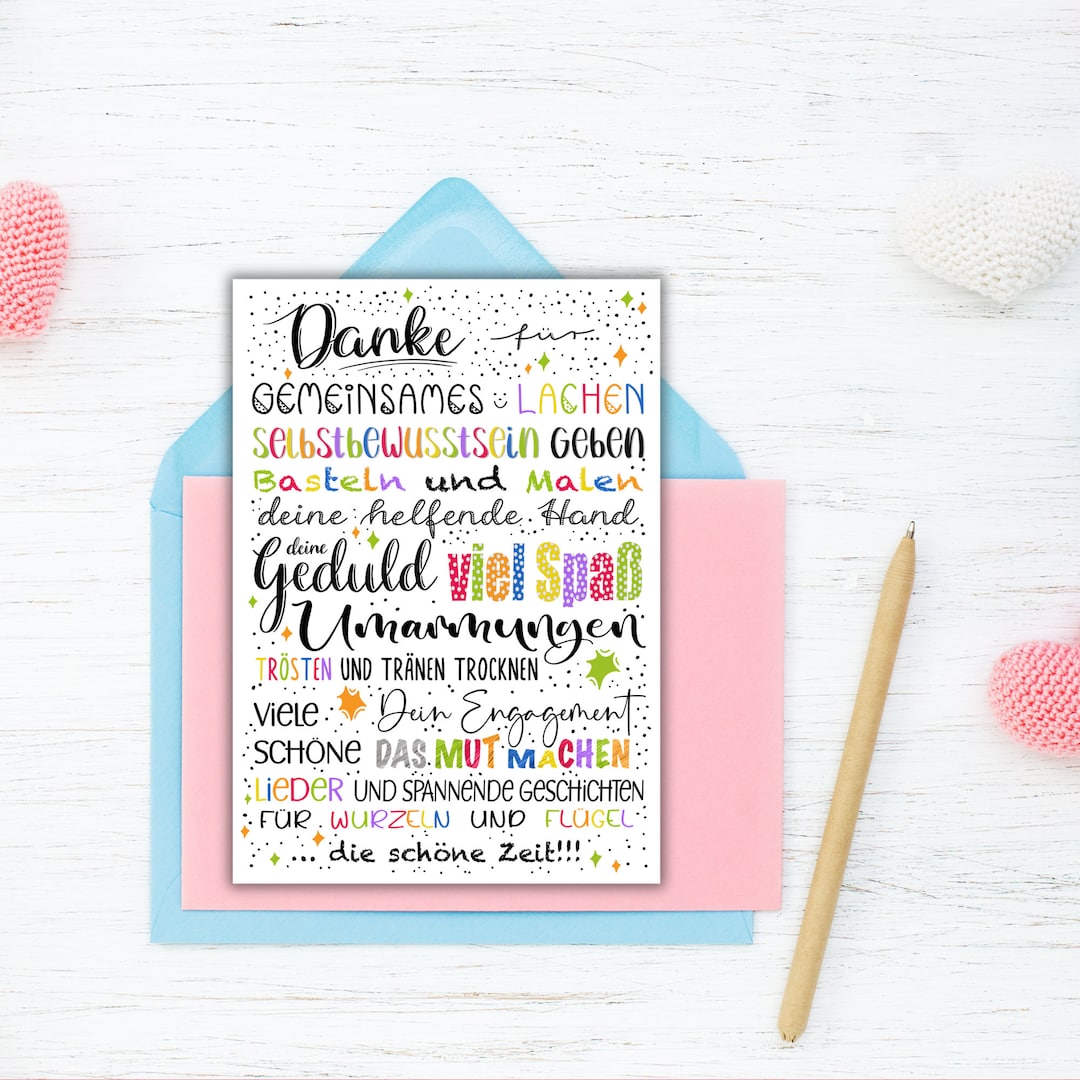 Danke für...
GEMEINSAMES LACHEN
SELBSTBEWUSSTSEIN GEBEN
Basteln und Malen
deine helfende Hand
deine Geduld viel Spaß
Umarmungen
TRÖSTEN UND TRÄNEN TROCKNEN
VIELE Dein Engagement
SCHÖNE DAS MUT MACHEN
LIEDER UND SPANNENDE GESCHICHTEN
FÜR WURZELN UND FLÜGEL
... die schöne Zeit!!!